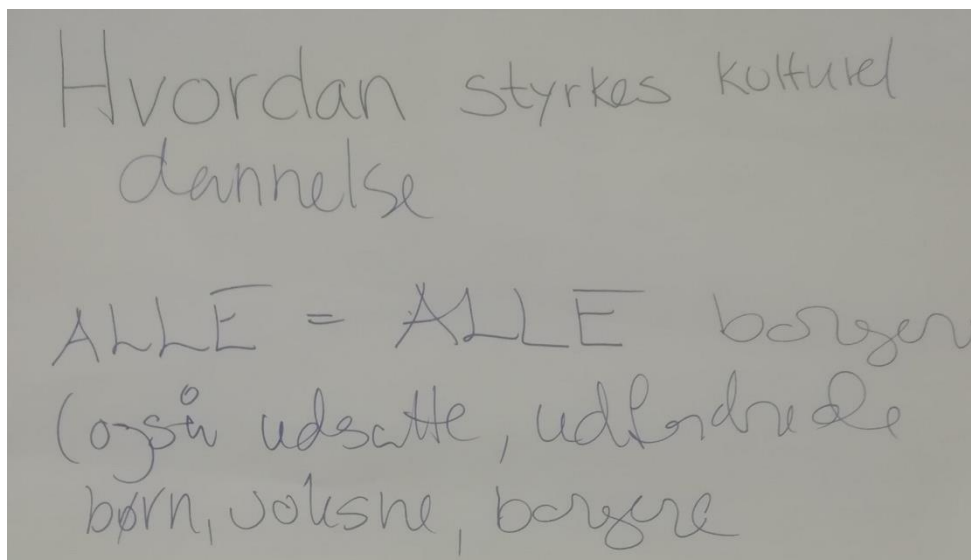 Hvordan styrkes kulturel
dannelse
ALLE = ALLE borger
(også udsatte, udfordrede
børn, voksne, borgere